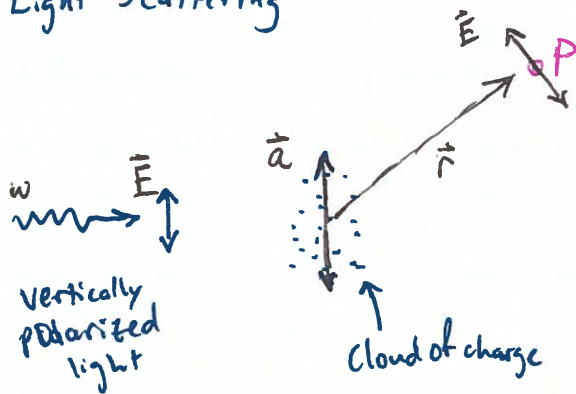 Light Scattering
E
P
a
r
ω
E
vertically
polarized
light
Cloud of charge